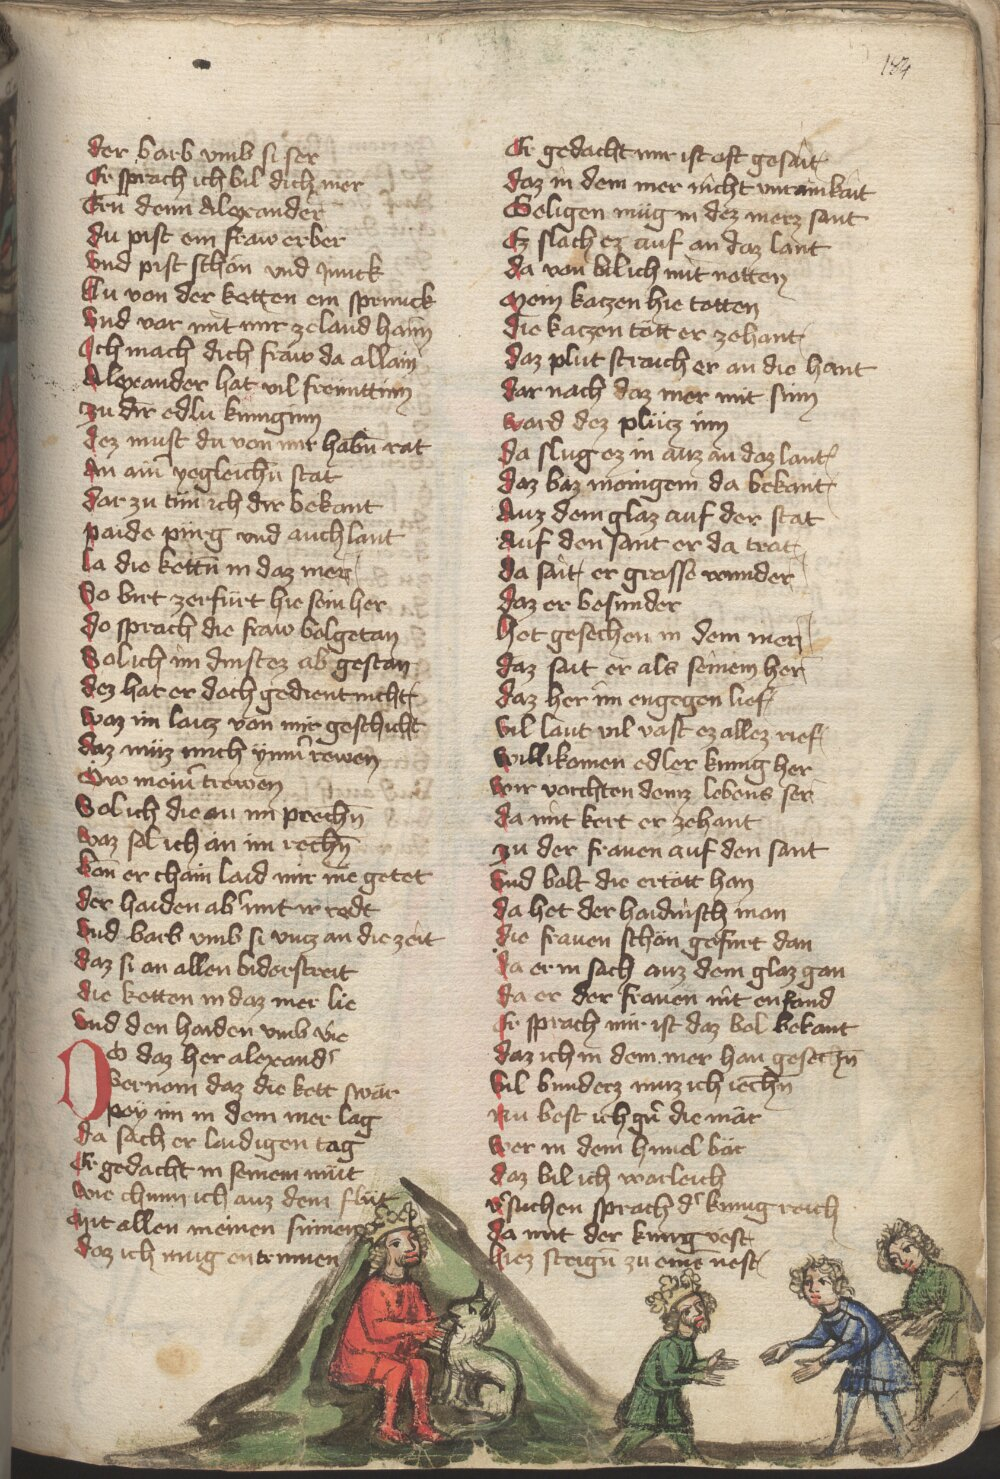 184
der barb vmb si ser
Er sprach ich bil dich mer
Ern denn Alexander
du pist ein fraw erber
Vnd pist schön vnd Junck
Tu von der ketten ein sprunck
Vnd var mit mir ze land haim
Ich mach dich fraw da allain
Alexander hat vil freuttinn
zu dir edlu kunginn
dez must du von mir habn rat
An aim yegleichn stat
dar zu tün ich dir bekant
paide pürg vnd auch lant
la die kettn in daz mer
So birt zerfürt hie sein her
do sprach die fraw bolgetan
Sol ich im dinstez ab gestan
dez hat er doch gedient nicht
waz im laitz von mir geschicht
daz müz mich ymm rewen
Ow mein trewen
Sol ich die an im prechn
waz sol ich an im rechn
kan er chain laid mir nie getet
der haiden ab mit ir redt
Vnd barb vmb si vncz an die zeit
daz si an allen biderstreit
die ketten in daz mer lie
Vnd den haiden vmb vie
DO daz her alexand
Vernom daz die kett swär
pey im in dem mer lag
da sach er laidigen tag
Er gedacht in seinem müt
wie chum ich auz dem flüt
Mit allen meinen sinnen
daz ich mug entrinnen
Er gedacht mir ist oft gesait
daz in dem mer nicht vnrainkait
Beligen müg in dez merz sant
Ez slach ez auf an daz lant
da von bil ich mit notten
Mein kaczen hie totten
die kaczen tött er zehant
daz plut straich er an die hant
dar nach daz mer mit sinn
ward dez plütz inn
da slug ez in auz an daz lant
daz baz mänigem da bekant
Auz dem glaz auf der stat
Auf den sant er da trat
da sait er grosse wunder
daz er besunder
Het gesechen in dem mer
daz sait er als seinem her
daz her im engegen lief
Vil laut vil vast ez allez rief
Willikomen edler kunig her
wir vorchten deinz lebens ser
da mit kert er zehant
zu der frauen auf den sant
Vnd bolt die ertött han
da het der haidnisch man
die frauen schön gefurt dan
da er in sach auz dem glaz gan
da er der frauen nit enfand
Er sprach mir ist daz bol bekant
daz ich in dem mer han gesechn
Vil bunderz muz ich iechn
Nu best ich gn die mär
wer in dem himel bär
daz bil ich warleich
vsuchen sprach d kunig reich
da mit der kunig vest
hiez steign zu eine nest